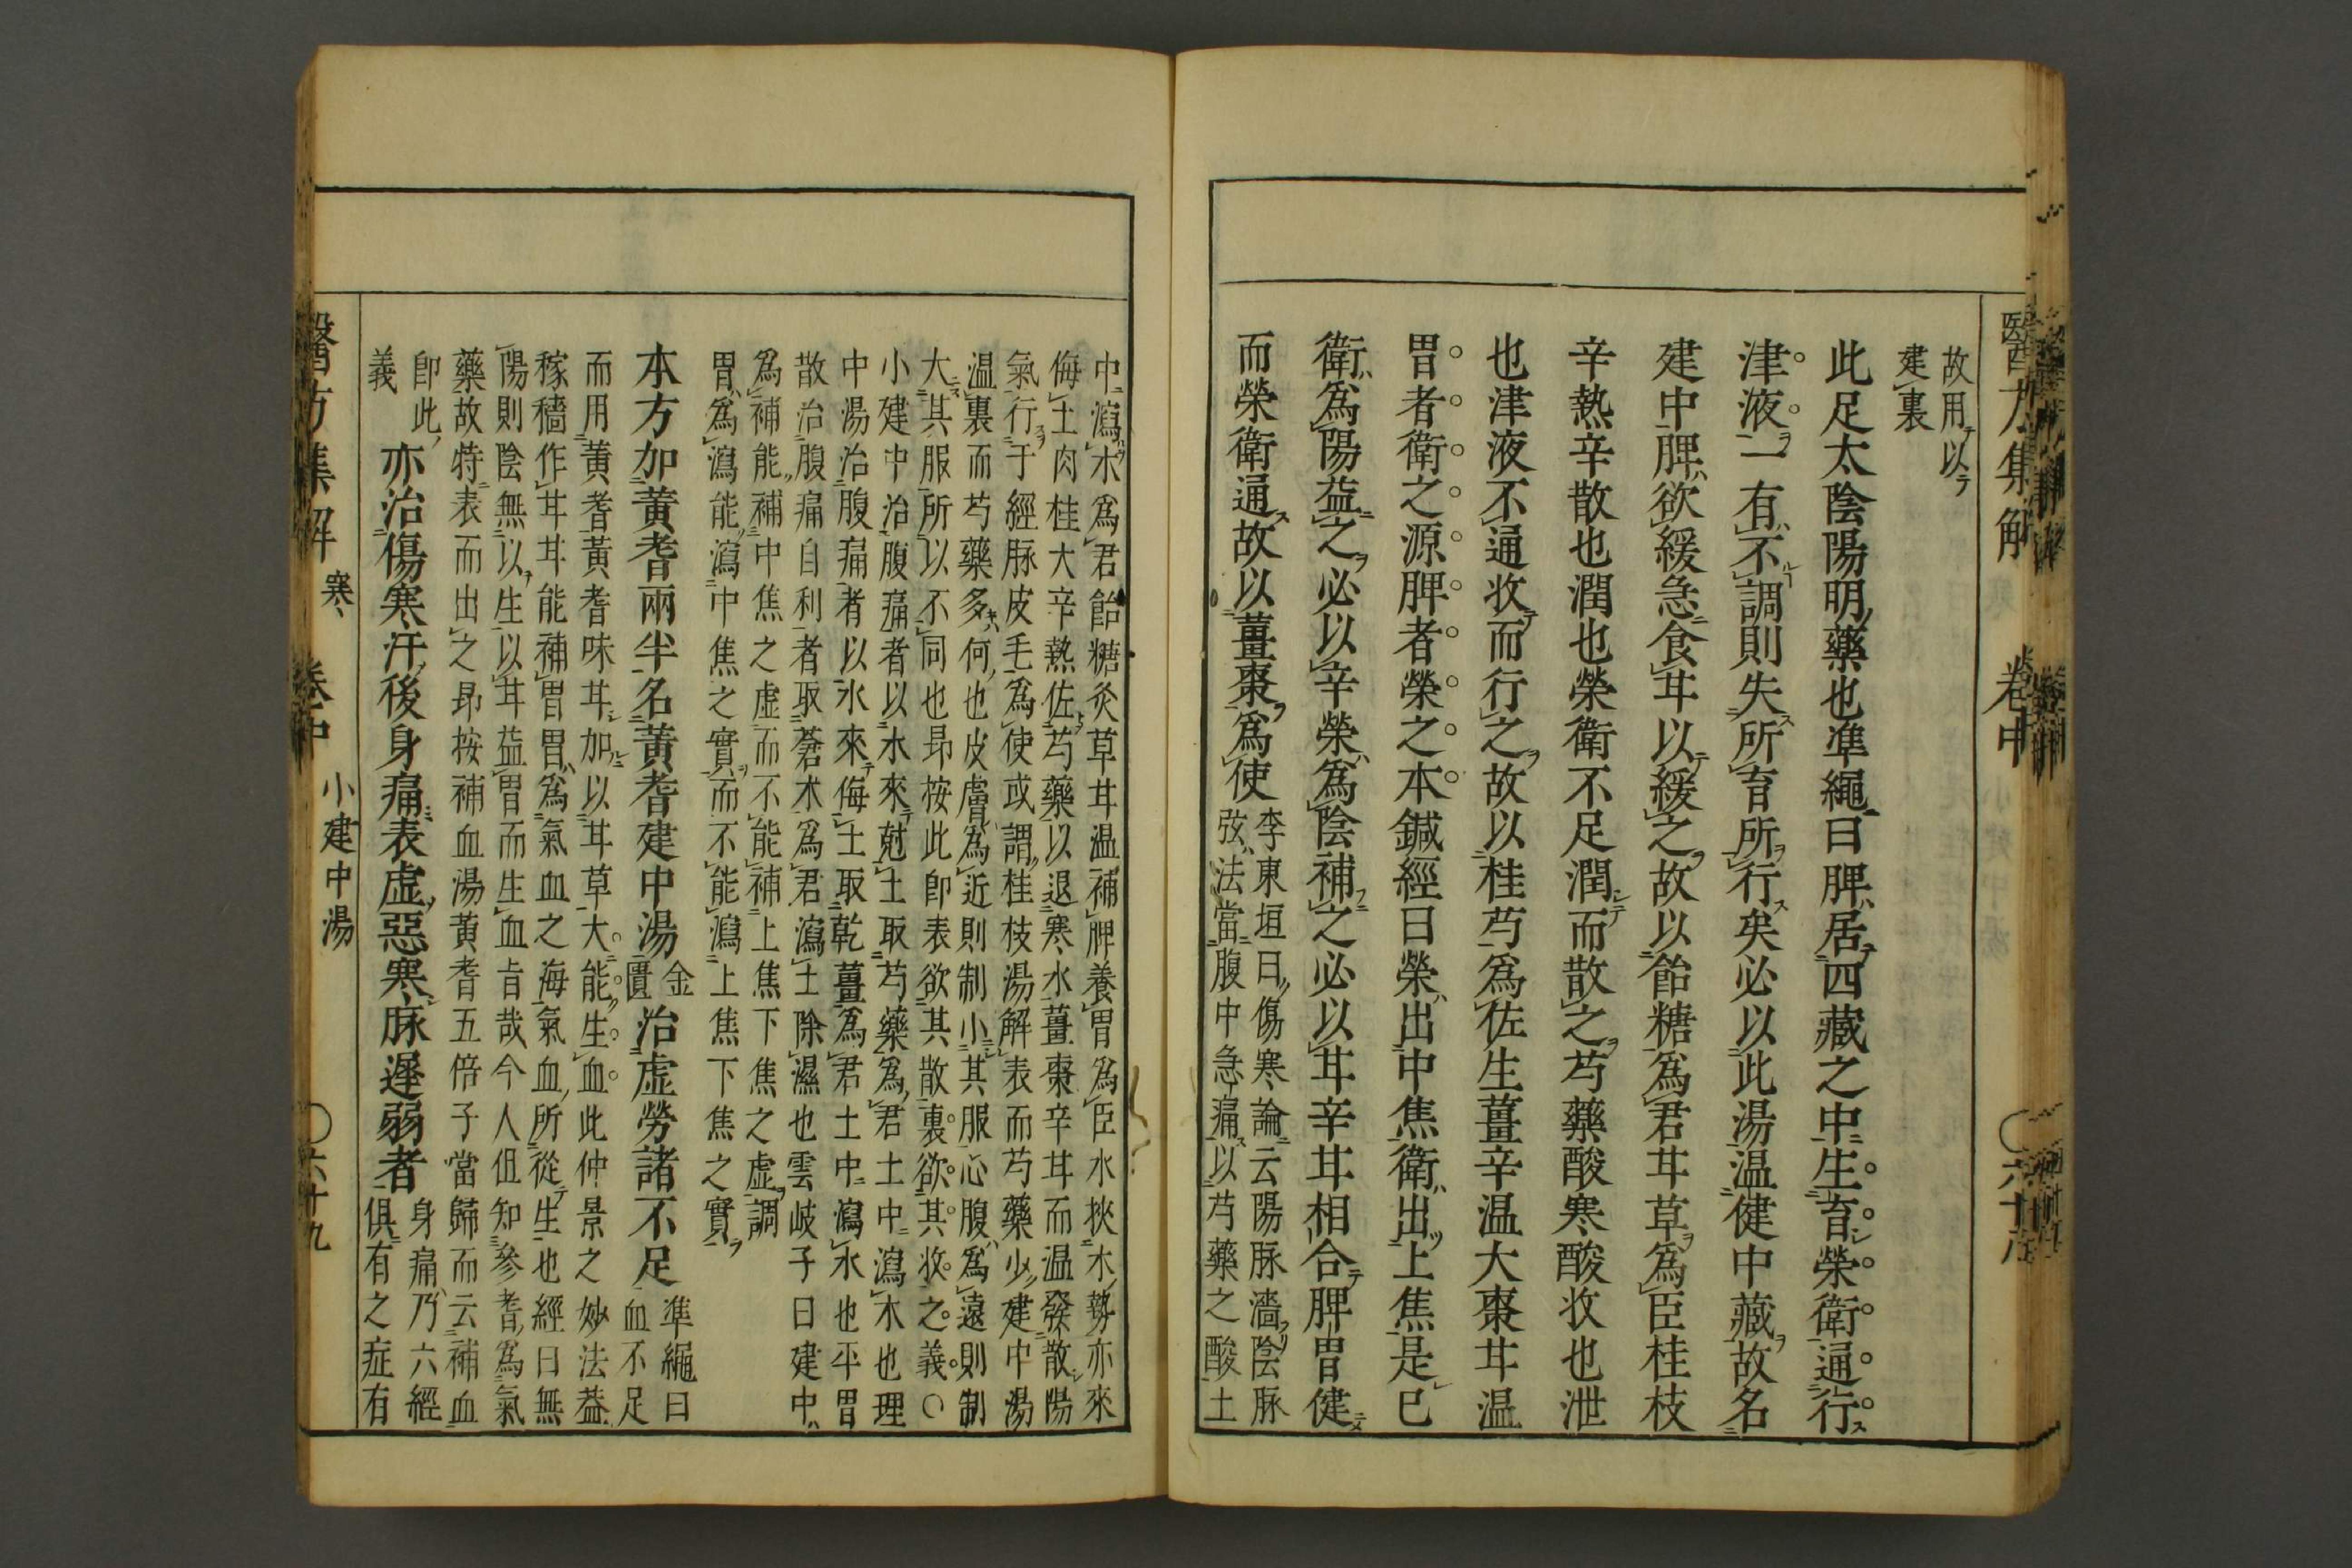 醫方集解 卷中 〇六十八
故用以
建裏
此足太陰陽明藥也準繩曰脾居四藏之中生育榮衛通行
津液一有不調則失所育所行矣必以此湯温健中藏故名
建中脾欲緩急食甘以緩之故以飴糖爲君甘草爲臣桂枝
辛熱辛散也潤也榮衛不足潤而散之芍藥酸寒酸收也泄
也津液不通收而行之故以桂芍爲佐生薑辛温大棗甘温
胃者衛之源脾者榮之本鍼經曰榮出中焦衛出上焦是已
衛爲陽益之必以辛榮爲陰補之必以甘辛甘相合脾胃健
而榮衛通故以薑棗爲使
李東垣曰傷寒論云陽脉濇陰脉
弦法當腹中急痛以芍藥之酸土
中瀉木爲君飴糖炙草甘温補脾養胃爲臣水挾木勢亦來
侮土肉桂大辛熱佐芍藥以退寒水薑棗辛甘而温發散陽
氣行于經脉皮毛爲使或謂桂枝湯解表而芍藥少建中湯
温裏而芍藥多何也皮膚爲近則制小其服心腹爲遠則制
大其服所以不同也昻按此卽表欲其散裏欲其收之義〇
小建中治腹痛者以木來尅土取芍藥爲君土中瀉木也理
中湯治腹痛者以水來侮土取乾薑爲君土中瀉水也平胃
散治腹痛自利者取蒼术爲君瀉土除濕也雲岐子曰建中
爲補能補中焦之虛而不能補上焦下焦之虛調
胃爲瀉能瀉中焦之實而不能瀉上焦下焦之實
本方加黃耆兩半名黃耆建中湯
金
匱
治虛勞諸不足
準繩曰
血不足
而用黃耆黃耆味甘加以甘草大能生血此仲景之妙法益
稼穡作甘甘能補胃胃爲氣血之海氣血所從生也經曰無
陽則陰無以生以甘益胃而生血旨哉今人但知參耆爲氣
藥故特表而出之昻按補血湯黃耆五倍子當歸而云補血
卽此
義
亦治傷寒汗後身痛表虛惡寒脉遲弱者
身痛乃六經
俱有之症有
醫方集解 寒 卷中 小建中湯 〇六十九